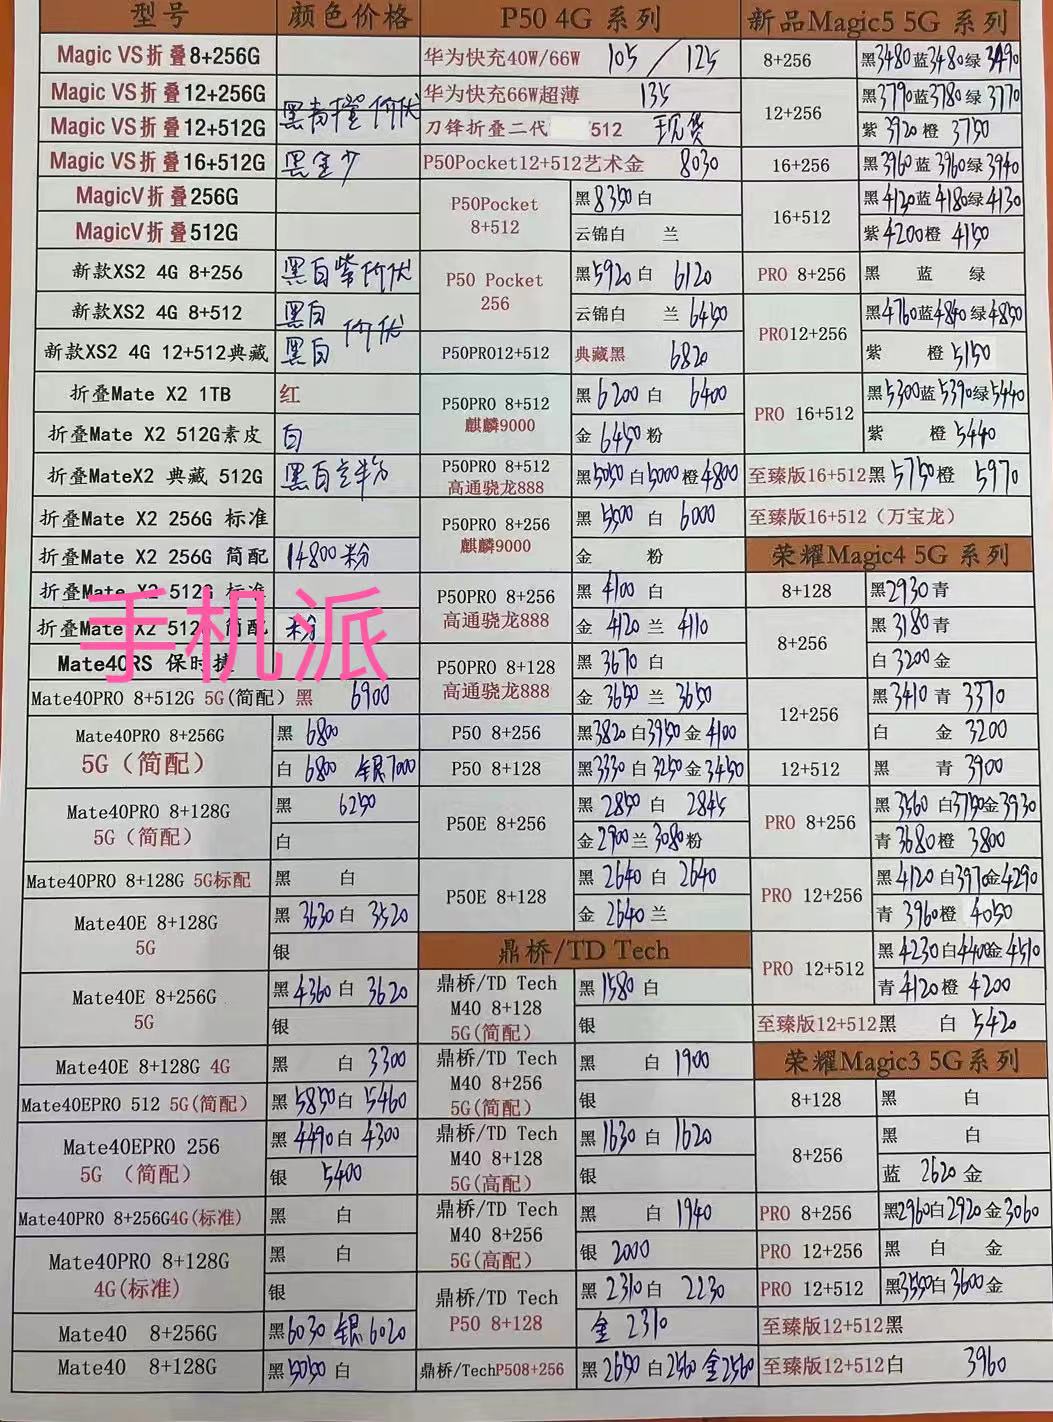 型号 颜色价格
Magic VS折叠8+256G
Magic VS折叠12+256G
黑青橙价优
Magic VS折叠12+512G
Magic VS折叠16+512G 黑金少
MagicV折叠256G
MagicV折叠512G
新款XS2 4G 8+256 黑白紫价优
新款XS2 4G 8+512 黑白
价优
新款XS2 4G 12+512典藏 黑白
折叠Mate X2 1TB 红
折叠Mate X2 512G素皮 白
折叠MateX2 典藏 512G 黑白兰粉
折叠Mate X2 256G 标准
折叠Mate X2 256G 简配 14800粉
折叠Mate X2 512G 标准
折叠Mate X2 512G 简配 粉
手机派
Mate40RS 保时捷
Mate40PRO 8+512G 5G(简配) 黑 6900
Mate40PRO 8+256G
5G(简配)
黑 6800
白 6800 银7000
Mate40PRO 8+128G
5G(简配)
黑 6250
白
Mate40PRO 8+128G 5G标配 黑 白
Mate40E 8+128G
5G
黑 3630 白 3520
银
Mate40E 8+256G
5G
黑 4360 白 3620
银
Mate40E 8+128G 4G 黑 白 3300
Mate40EPRO 512 5G(简配) 黑 5850 白 5460
Mate40EPRO 256
5G (简配)
黑 4490 白 4300
银 5400
Mate40PRO 8+256G4G(标准) 黑 白
Mate40PRO 8+128G
4G(标准)
黑 白
银
Mate40 8+256G 黑6030 银6020
Mate40 8+128G 黑5050 白
P50 4G 系列
华为快充40W/66W 105 / 125
华为快充66W超薄 135
刀锋折叠二代 512 现货
P50Pocket12+512艺术金 8030
P50Pocket
8+512
黑8350 白
云锦白 兰
P50 Pocket
256
黑5920 白 6120
云锦白 兰 6450
P50PRO12+512 典藏黑 6820
P50PRO 8+512
麒麟9000
黑 6200 白 6400
金 6450 粉
P50PRO 8+512
高通骁龙888
黑5050 白5000 橙4800
P50PRO 8+256
麒麟9000
黑 5500 白 6000
金 粉
P50PRO 8+256
高通骁龙888
黑 4100 白
金 4120 兰 4110
P50PRO 8+128
高通骁龙888
黑 3670 白
金 3650 兰 3650
P50 8+256 黑3820 白3950 金 4100
P50 8+128 黑3330 白 3250 金3450
P50E 8+256
黑 2850 白 2845
金2900 兰 3080 粉
P50E 8+128
黑 2640 白 2640
金 2640 兰
鼎桥/TD Tech
鼎桥/TD Tech
M40 8+128
5G(简配)
黑 1580 白
银
鼎桥/TD Tech
M40 8+256
5G(简配)
黑 白 1900
银
鼎桥/TD Tech
M40 8+128
5G(高配)
黑 1630 白 1620
银
鼎桥/TD Tech
M40 8+256
5G(高配)
黑 白 1940
银 2000
鼎桥/TD Tech
P50 8+128
黑 2310 白 2230
金 2310
鼎桥/TechP508+256 黑 2650 白2560 金2560
新品Magic5 5G 系列
8+256 黑3480蓝3480绿 3490
12+256
黑3790蓝3780 绿 3770
紫 3920 橙 3750
16+256 黑 3960 蓝 3960绿 3940
16+512
黑 4130蓝 4180绿4130
紫4200橙 4150
PRO 8+256 黑 蓝 绿
PRO12+256
黑4760蓝4840 绿4850
紫 橙 5150
PRO 16+512
黑5300蓝5390绿5440
紫 橙 5440
至臻版16+512黑 5750橙 5970
至臻版16+512(万宝龙)
荣耀Magic4 5G 系列
8+128 黑2930青
8+256
黑 3180青
白 3200金
12+256
黑3410 青 3370
白 金 3200
12+512 黑 青 3900
PRO 8+256
黑 3560 白3750金3930
青 3680橙 3800
PRO 12+256
黑4120 白3970金4290
青 3960橙 4050
PRO 12+512
黑 4230白4400金4510
青 4120橙 4200
至臻版12+512黑 白 5420
荣耀Magic3 5G系列
8+128 黑 白
8+256
黑 白
蓝 2620 金
PRO 8+256 黑2960白2920 金3060
PRO 12+256 黑 白 金
PRO 12+512 黑3550白 3600金
至臻版12+512黑
至臻版12+512白 3960